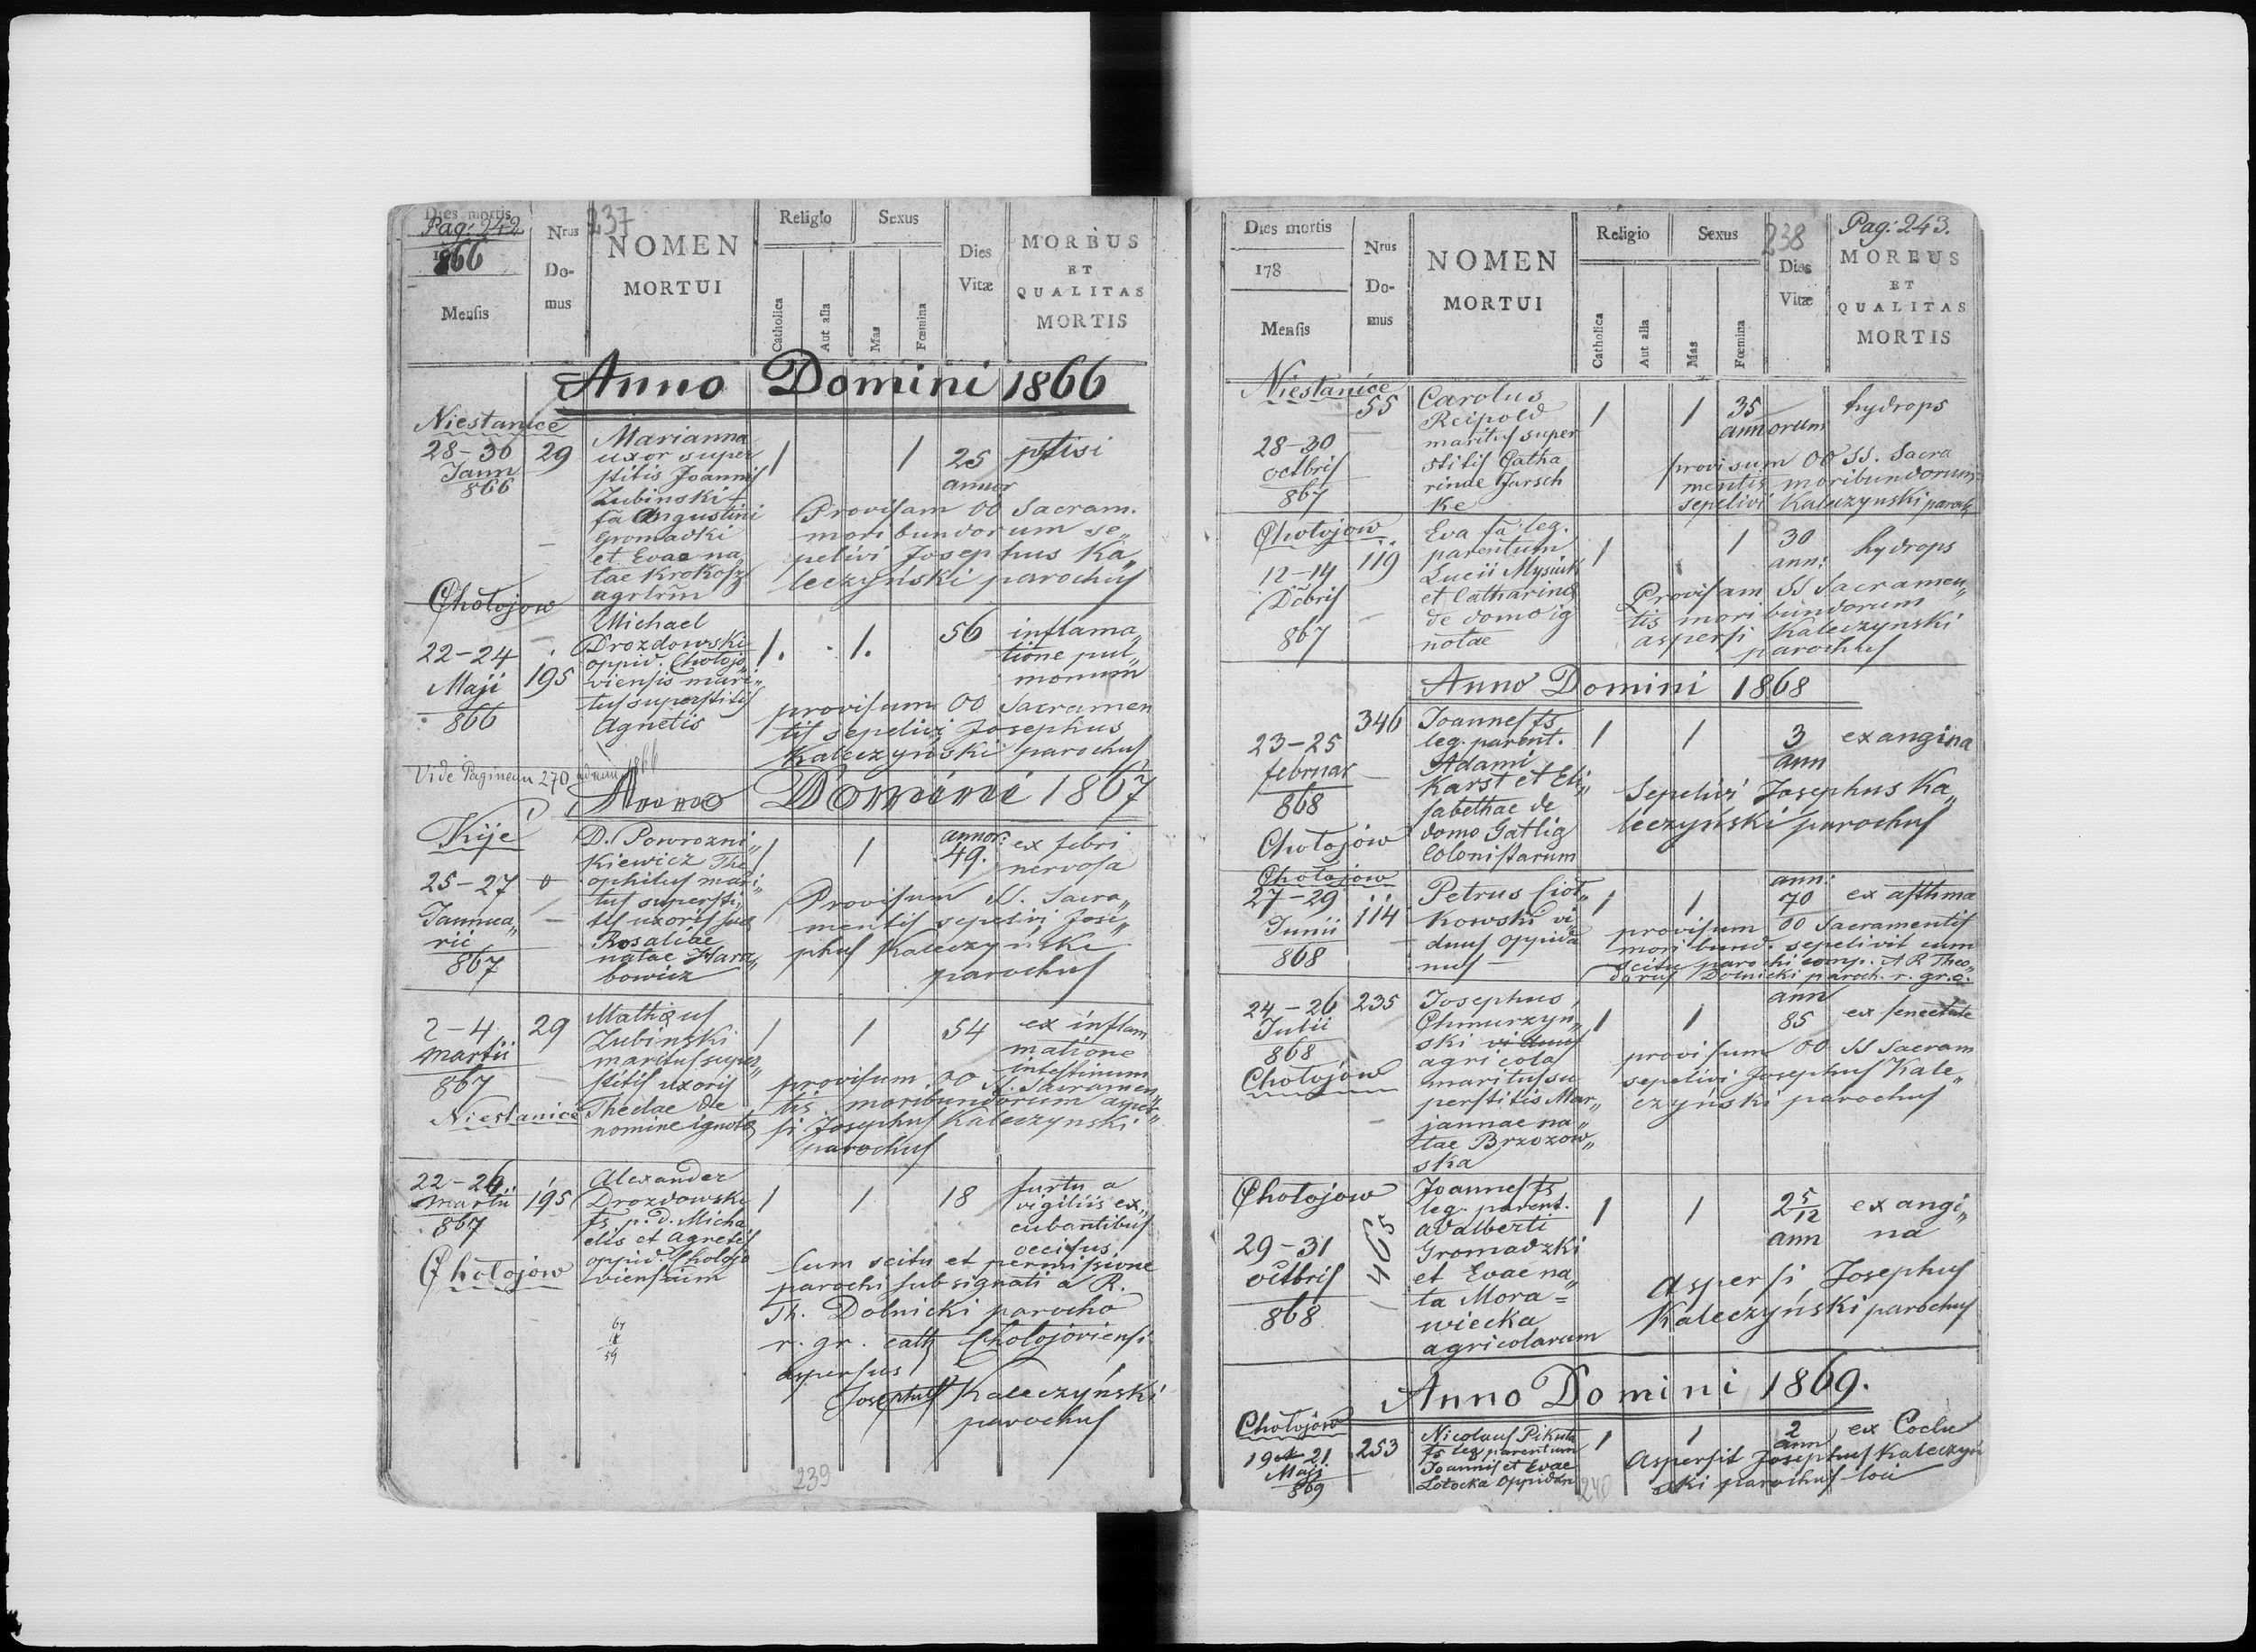 Dies mortis
Pag: 242
237
866
Mensis
Nrus
Do-
mus
NOMEN
MORTUI
Religio
Catholica
Aut alia
Sexus
Mas
Fœmina
Dies
Vitæ
MORBUS
ET
QUALITAS
MORTIS
Anno Domini 1866
Niestanice
28-30
Jann
866
29
Marianna
uxor super
stitis Joannis
Zubinski +
fa Angustini
Gromadki
et Evae na
tae Krokosz
agrlrm
1
1
25
annor
ptisi
Provisam oo Sacram.
moribundorum se„
pelivi Josephus Ka„
leczyński parochus
Chołojow
22-24
Maji
866
195
Michael
Drozdowski
oppid. Chołojo„
viensis mari„
tus superstitis
Agnetis
1.
1.
56
inflama„
tione pul„
monum
provisum oo Sacramen
tis sepelivi Josephus
Kaleczyński parochus
Vide Paginem 270
Anno Domini 1867
Kije
25-27
Jannua„
rii
867
D. Powrozni„
kiewicz The
ophilus mari„
tus supersti„
tis uxoris suae
Rosaliae
natae Hara„
bowicz
1
1
annor:
49.
ex febri
nervosa
Provisum SS. Sacra„
mentis sepelivi Jose„
phus Kaleczyński
parochus
2-4
Martii
867
Niestanice
29
Mathæus
Zubinski
maritus super„
stitis uxoris
Theclae de
nomine ignota
1
1
54
ex inflam
matione
intestinum
provisum oo SS. Sacramen„
tis moribundorum asper„
si Josephus Kaleczynski
parochus
22-24
Martii
867
Chołojow
195
Alexander
Drozdowski
fs. p. d. Micha
elis et Agnetis
oppid. Chołojo
viensium
1
1
18
furtu a
vigiliis ex„
cubantibus
occisus
Cum scitu et permissione
parochi subsignati a R.
Th. Dolnicki parocho
r. gr. cath Chołojoviensi
aspersus
Josephus Kaleczyński
parochus
67
59
239
Dies mortis
178
Mensis
Nrus
Do-
mus
NOMEN
MORTUI
Religio
Catholica
Aut alia
Sexus
Mas
Fœmina
238
Dies
Vitæ
Pag: 243.
MORBUS
ET
QUALITAS
MORTIS
Niestanice
55
28-30
octbris
867
Carolus
Reipold
maritus super
stitis Catha
rinae Jarsch
ke
1
1
35
annorum
hydrops
provisum oo SS. Sacra
mentis moribundorum
sepelivi Kaleczynski paroch
Chołojow
119
12-14
Dcbris
867
Eva fa leg.
parentum
Lucii Mysiuk
et Catharina
de domo ig
notae
1
1
30
ann:
hydrops
Provisam SS Sacramen„
tis moribundorum
aspersi Kaleczynski
parochus
Anno Domini 1868
346
23-25
februar
868
Chołojów
Joannes fs
leg. parent.
Adami
Karst et Eli„
sabethae de
domo Gatlig
Colonistarum
1
1
3
ann
ex angina
Sepelivi Josephus Ka„
leczyński parochus
Chołojów
27-29
Junii
868
114
Petrus Ciot„
kowski vi„
duus oppida
nus
1
1
ann:
70
ex asthma
provisum oo Sacramentis
moribund. sepelivit cum
scitu parochi comp. A R Theo„
dorus Dolnicki paroch. r. gr. c.
24-26
Julii
868
Chołojów
235
Josephus
Chmurzyn„
ski viduus
agricola
maritus su
perstitis Mar„
jannae na„
tae Brzozow„
ska
1
1
ann
85
ex senectute
provisum oo SS Sacram
sepelivi Josephus Kale„
czyński parochus
Chołojow
29-31
octbris
868
465
Joannes fs
leg. parent.
Adalberti
Gromadzki
et Evae na„
ta Mora=
wiecka
agricolarum
1
1
2 5/12
ann
ex angi„
na
Aspersi Josephus
Kaleczyński parochus
Anno Domini 1869.
Chołojów
19 21.
Maji
869
253
Nicolaus Pikuta
fs leg parentum
Joannis et Evae
Lotocka Oppidan
1
1
2
ann
ex Coclu
Aspersit Josephus Kaleczyń
ski parochus loci
240